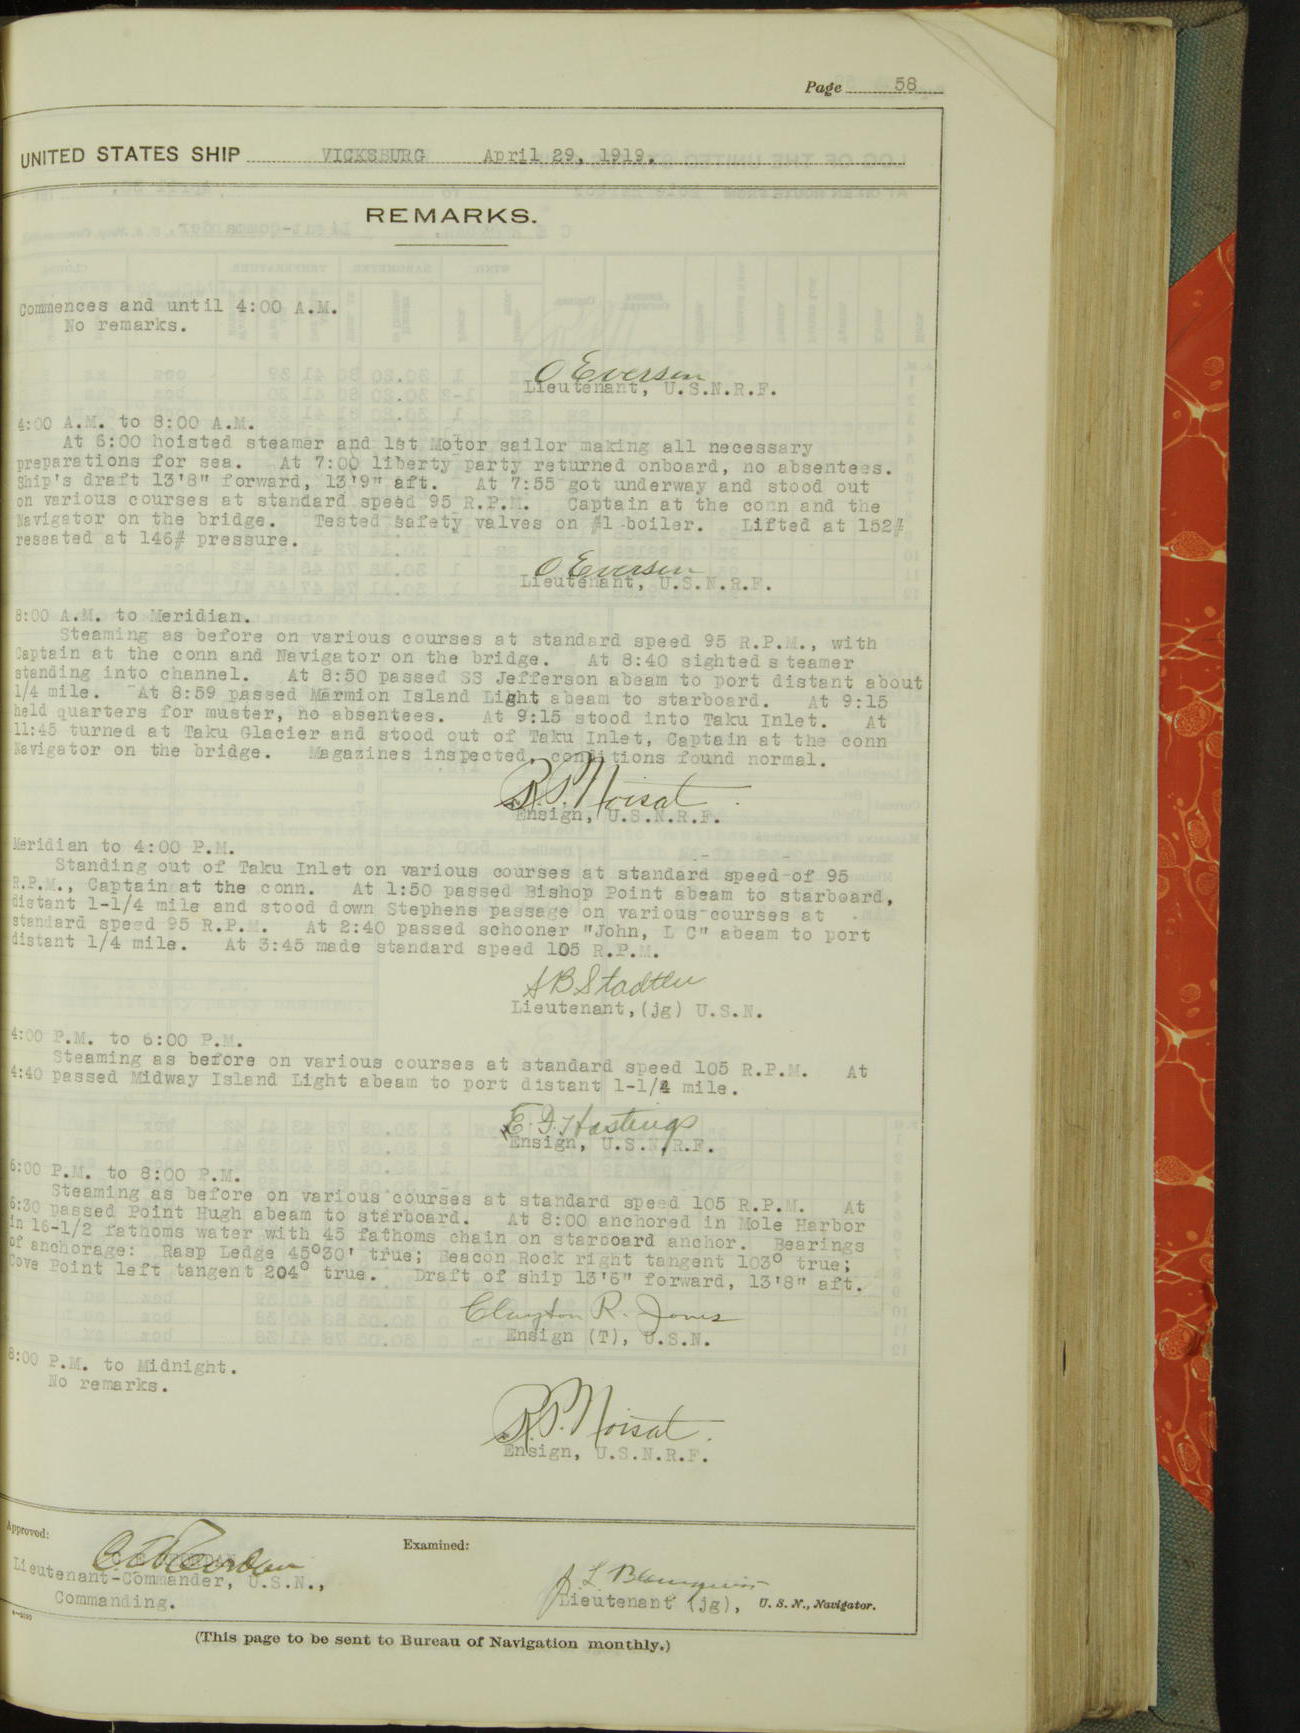 Page 58
UNITED STATES SHIP VICKSBURG April 29, 1919.
REMARKS.
Commences and until 4:00 A.M.
No remarks.
O Eversen
Lieutenant, U.S.N.R.F.
4:00 A.M. to 8:00 A.M.
At 6:00 hoisted steamer and 1st Motor sailor making all necessary
preparations for sea. At 7:00 liberty party returned onboard, no absentees.
Ship's draft 13'8" forward, 13'9" aft. At 7:55 got underway and stood out
on various courses at standard speed 95 R.P.M. Captain at the conn and the
Navigator on the bridge. Tested safety valves on #1 boiler. Lifted at 152#
reseated at 146# pressure.
O Eversen
Lieutenant, U.S.N.R.F.
8:00 A.M. to Meridian.
Steaming as before on various courses at standard speed 95 R.P.M., with
Captain at the conn and Navigator on the bridge. At 8:40 sighted steamer
standing into channel. At 8:50 passed SS Jefferson abeam to port distant about
1/4 mile. At 8:59 passed Marmion Island Light abeam to starboard. At 9:15
held quarters for muster, no absentees. At 9:15 stood into Taku Inlet. At
11:45 turned at Taku Glacier and stood out of Taku Inlet, Captain at the conn
Navigator on the bridge. Magazines inspected, conditions found normal.
R.P. Noisat
Ensign, U.S.N.R.F.
Meridian to 4:00 P.M.
Standing out of Taku Inlet on various courses at standard speed of 95
R.P.M., Captain at the conn. At 1:50 passed Bishop Point abeam to starboard,
distant 1-1/4 mile and stood down Stephens passage on various courses at
standard speed 95 R.P.M. At 2:40 passed schooner "John, L C" abeam to port
distant 1/4 mile. At 3:45 made standard speed 105 R.P.M.
Lieutenant, (jg) U.S.N.
4:00 P.M. to 6:00 P.M.
Steaming as before on various courses at standard speed 105 R.P.M. At
4:40 passed Midway Island Light abeam to port distant 1-1/4 mile.
Hastings
Ensign, U.S.N.R.F.
6:00 P.M. to 8:00 P.M.
Steaming as before on various courses at standard speed 105 R.P.M. At
6:30 passed Point Hugh abeam to starboard. At 8:00 anchored in Mole Harbor
in 16-1/2 fathoms water with 45 fathoms chain on starboard anchor. Bearings
of anchorage: Rasp Ledge 45°30' true; Beacon Rock right tangent 103° true;
Cove Point left tangent 204° true. Draft of ship 13'6" forward, 13'8" aft.
Clayton R. Jones
Ensign (T), U.S.N.
8:00 P.M. to Midnight.
No remarks.
R.P. Noisat.
Ensign, U.S.N.R.F.
Approved:
Examined:
Lieutenant-Commander, U.S.N.,
Commanding.
Lieutenant (jg), U. S. N., Navigator.
(This page to be sent to Bureau of Navigation monthly.)